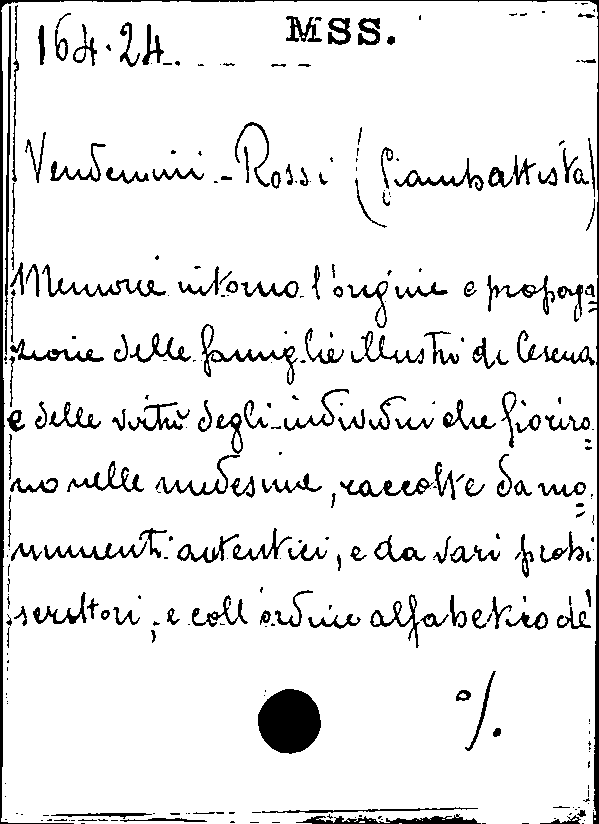 164.24. MSS.
Vendemini-Rossi (Giambattista)
Memorie intorno l'origine e propaga=
zione delle famiglie illustri di Cesena
e delle virtù degli individui che fioriro=
no nelle medesime, raccolte da mo=
numenti autentici, e da vari probi
scrittori, e coll'ordine alfabetico de'
%.